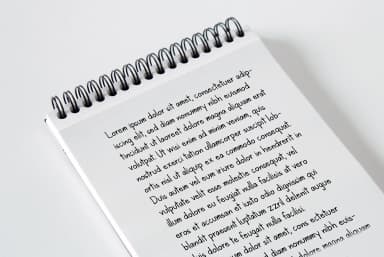 Lorem ipsum dolor sit amet, consectetuer adip-
iscing elit, sed diam nonummy nibh euismod
tincidunt ut laoreet dolore magna aliquam erat
volutpat. Ut wisi enim ad minim veniam, quis
nostrud exerci tation ullamcorper suscipit lob-
ortis nisl ut aliquip ex ea commodo consequat.
Duis autem vel eum iriure dolor in hendrerit in
vulputate velit esse molestie consequat, vel
illum dolore eu feugiat nulla facilisis at vero
eros et accumsan et iusto odio dignissim qui
blandit praesent luptatum zzril delenit augue
duis dolore te feugait nulla facilisi.
dolor sit amet, cons ectetuer
diam nonummy nibh euis-
magna aliquam